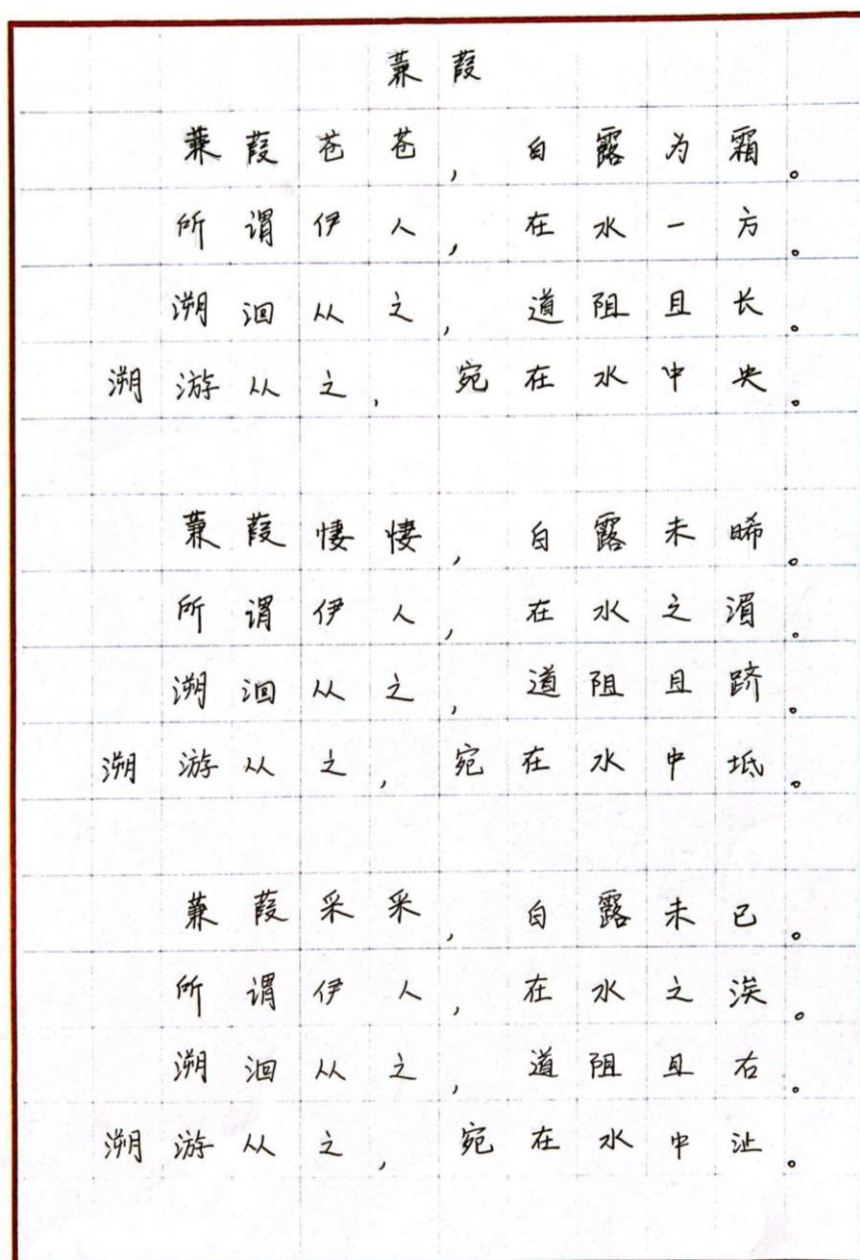 蒹葭
蒹葭苍苍,白露为霜。
所谓伊人,在水一方。
溯洄从之,道阻且长。
溯游从之,宛在水中央。
蒹葭悽悽,白露未晞。
所谓伊人,在水之湄。
溯洄从之,道阻且跻。
溯游从之,宛在水中坻。
蒹葭采采,白露未已。
所谓伊人,在水之涘。
溯洄从之,道阻且右。
溯游从之,宛在水中沚。